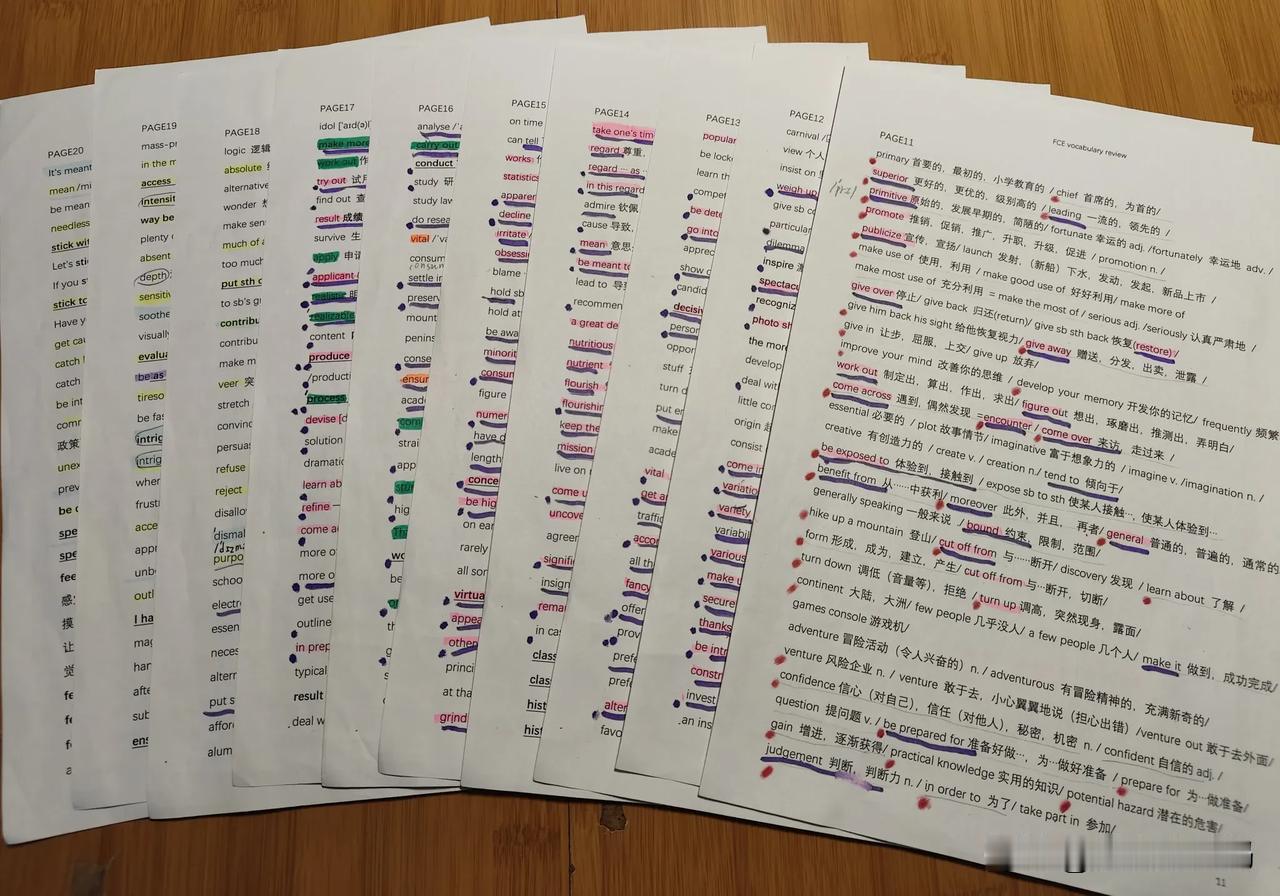 PAGE20
It's meant
mean /mi
be mean
needless
stick wit
Let's sti
If you s
stick to
Have y
get cau
catch
catch
be int
comm
政策
unex
prev
be c
spe
spe
fee
感
摸
让
觉
fe
fe
PAGE19
mass-pr
in the m
access
intensit
way be
plenty
absent
depth;
sensitiv
soothe
visually
evalua
be as
tireso
be fas
intrig
intrig
wher
frust
acce
appr
unb
outl
I ha
mag
han
afte
sub
ens
PAGE18
logic 逻辑
absolute
alternative
wonder
make sen
much of a
too much
put sth
to sb's gr
contribu
contribu
make m
veer 突
stretch
convinc
persuas
refuse
reject
disallo
dismal
purpo
schoo
electr
essen
neces
altern
put s
affor
alum
PAGE17
idol ['aɪd(ə)l
make more
work out 作
try out 试用
find out 查
result 成绩
survive 生
apply 申请
applicant
realistic 明
realizable
content
produce
/producti
process
devise [d
solution
dramatic
learn ab
refine
come a
more o
more o
get use
outline
in prep
typical
result
deal w
PAGE16
analyse /'a
carry out
conduct
study 研
study law
do resea
vital /'va
consum
consum
settle in
preserv
mount
penins
conse
ensur
acade
com
strai
app
stur
hig
Th
wo
be
PAGE15
on time
can tell
works
statistics
apparen
decline
irritate
obsessi
blame
hold sb
hold at
be awa
minorit
consum
figure
numer
have d
length
conce
be hig
on ear
rarely
all sor
virtua
appea
other
princi
at tha
grind
PAGE14
take one's tim
regard 尊重,
regard … as
in this regard
admire 钦佩
cause 导致,
mean 意思
be meant to
lead to 导致
recommen
a great de
nutritious
nutrient
flourish
flourishin
keep the
mission
live on
come u
uncove
agreer
signifi
insign
rema
in cas
class
class
hist
hist
PAGE13
popular
be locke
learn th
compe
be dete
go into
apprec
show c
candid
decisi
person
oppor
stuff
turn d
put en
make
acade
vital
get ar
traffic
acco
all th
fancy
offer
prov
prefe
prefe
alter
favo
PAGE12
carnival /[
view 个人
insist on
weigh up
give sb c
particular
dilemma
inspire 激
spectacu
recogniz
photo sh
the more
develop
deal wit
little con
origin 起
consist
come in
variatio
variety
variabl
various
make u
secure
thanks
be intr
constr
invest
an ins
PAGE11
FCE vocabulary review
primary 首要的、最初的、小学教育的 / chief 首席的，为首的/
superior 更好的、更优的，级别高的 / leading 一流的，领先的 /
primitive 原始的、发展早期的，简陋的/ fortunate 幸运的 adj. /fortunately 幸运地 adv. /
promote 推销、促销、推广，升职、升级，促进 / promotion n. /
publicize 宣传，宣扬/ launch 发射，（新船）下水，发动，发起，新品上市 /
make use of 使用，利用 / make good use of 好好利用/ make more of
make most use of 充分利用 = make the most of / serious adj. /seriously 认真严肃地 /
give over 停止/ give back 归还(return)/ give sb sth back 恢复(restore)/
give him back his sight 给他恢复视力/ give away 赠送，分发，出卖，泄露 /
give in 让步，屈服，上交/ give up 放弃/
improve your mind 改善你的思维 / develop your memory 开发你的记忆/ frequently 频繁
work out 制定出，算出，作出，求出/ figure out 想出，琢磨出，推测出，弄明白/
come across 遇到，偶然发现 =encounter / come over 来访，走过来 /
essential 必要的 / plot 故事情节/ imaginative 富于想象力的 / imagine v. /imagination n. /
creative 有创造力的 / create v. / creation n./ tend to 倾向于/
be exposed to 体验到，接触到 / expose sb to sth 使某人接触…，使某人体验到…
benefit from 从……中获利/ moreover 此外，并且，再者/ general 普通的，普遍的，通常的
generally speaking 一般来说 / bound 约束，限制，范围/
hike up a mountain 登山/ cut off from 与……断开/ discovery 发现 / learn about 了解 /
form 形成，成为，建立，产生/ cut off from 与…断开，切断/
turn down 调低（音量等），拒绝 / turn up 调高，突然现身，露面/
continent 大陆，大洲/ few people 几乎没人/ a few people 几个人/ make it 做到，成功完成/
games console 游戏机/
adventure 冒险活动（令人兴奋的）n. / adventurous 有冒险精神的，充满新奇的/
venture 风险企业 n. / venture 敢于去，小心翼翼地说（担心出错）/venture out 敢于去外面/
confidence 信心（对自己），信任（对他人），秘密，机密 n. / confident 自信的 adj. /
question 提问题 v. / be prepared for 准备好做…，为…做好准备 / prepare for 为…做准备/
gain 增进，逐渐获得/ practical knowledge 实用的知识/ potential hazard 潜在的危害/
judgement 判断，判断力 n. / in order to 为了/ take part in 参加/
11